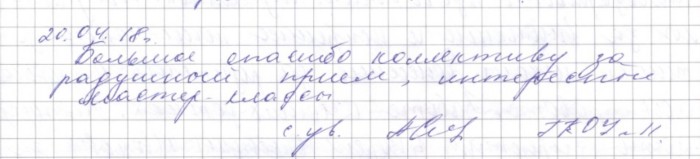 20.04.18г.
Большое спасибо коллективу за
радушный прием, интересные
мастер-классы
с ув.